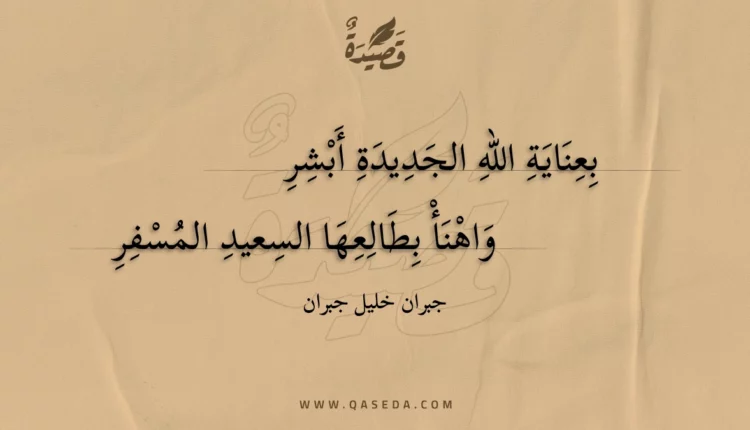 قَصِيْدَةٌ
بِعِنَايَةِ اللهِ الجَدِيدَةِ أَبْشِرِ
وَاهْنَأْ بِطَالِعِهَا السِعيدِ المُسْفِرِ
جبران خليل جبران
WWW.QASEDA.COM